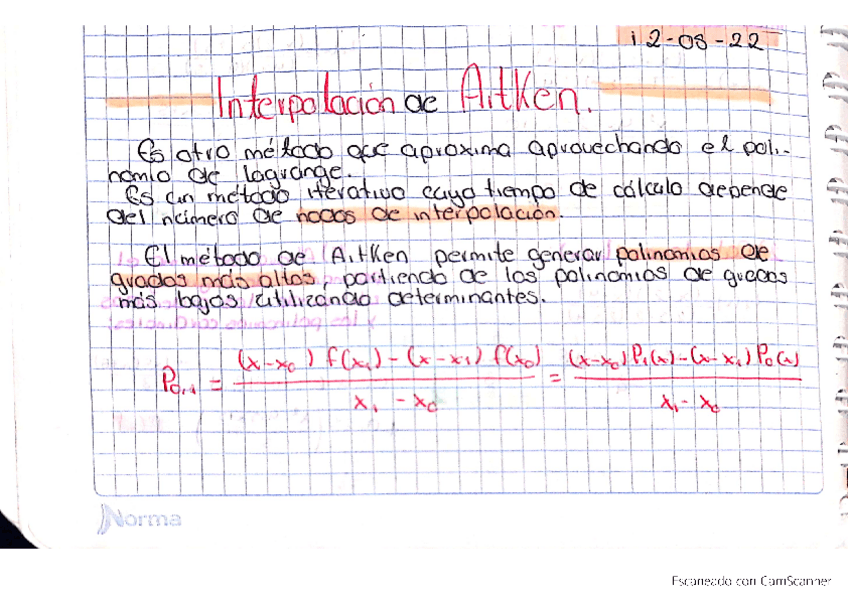 12-08-22
Interpolación de Aitken.
Es otro método que aproxima aprovechando el poli-
nomio de lagrange.
Es un método iterativo cuyo tiempo de cálculo depende
del número de nodos de interpolación.
El método de Aitken permite generar polinomios de
grados más altos, partiendo de los polinomios de grados
más bajos utilizando determinantes.
P₀,₁ = (x-x₀) f(x₁) - (x-x₁) f(x₀) / x₁ - x₀ = (x-x₀) P₁(x) - (x-x₁) P₀(x) / x₁ - x₀
Norma
Escaneado con CamScanner